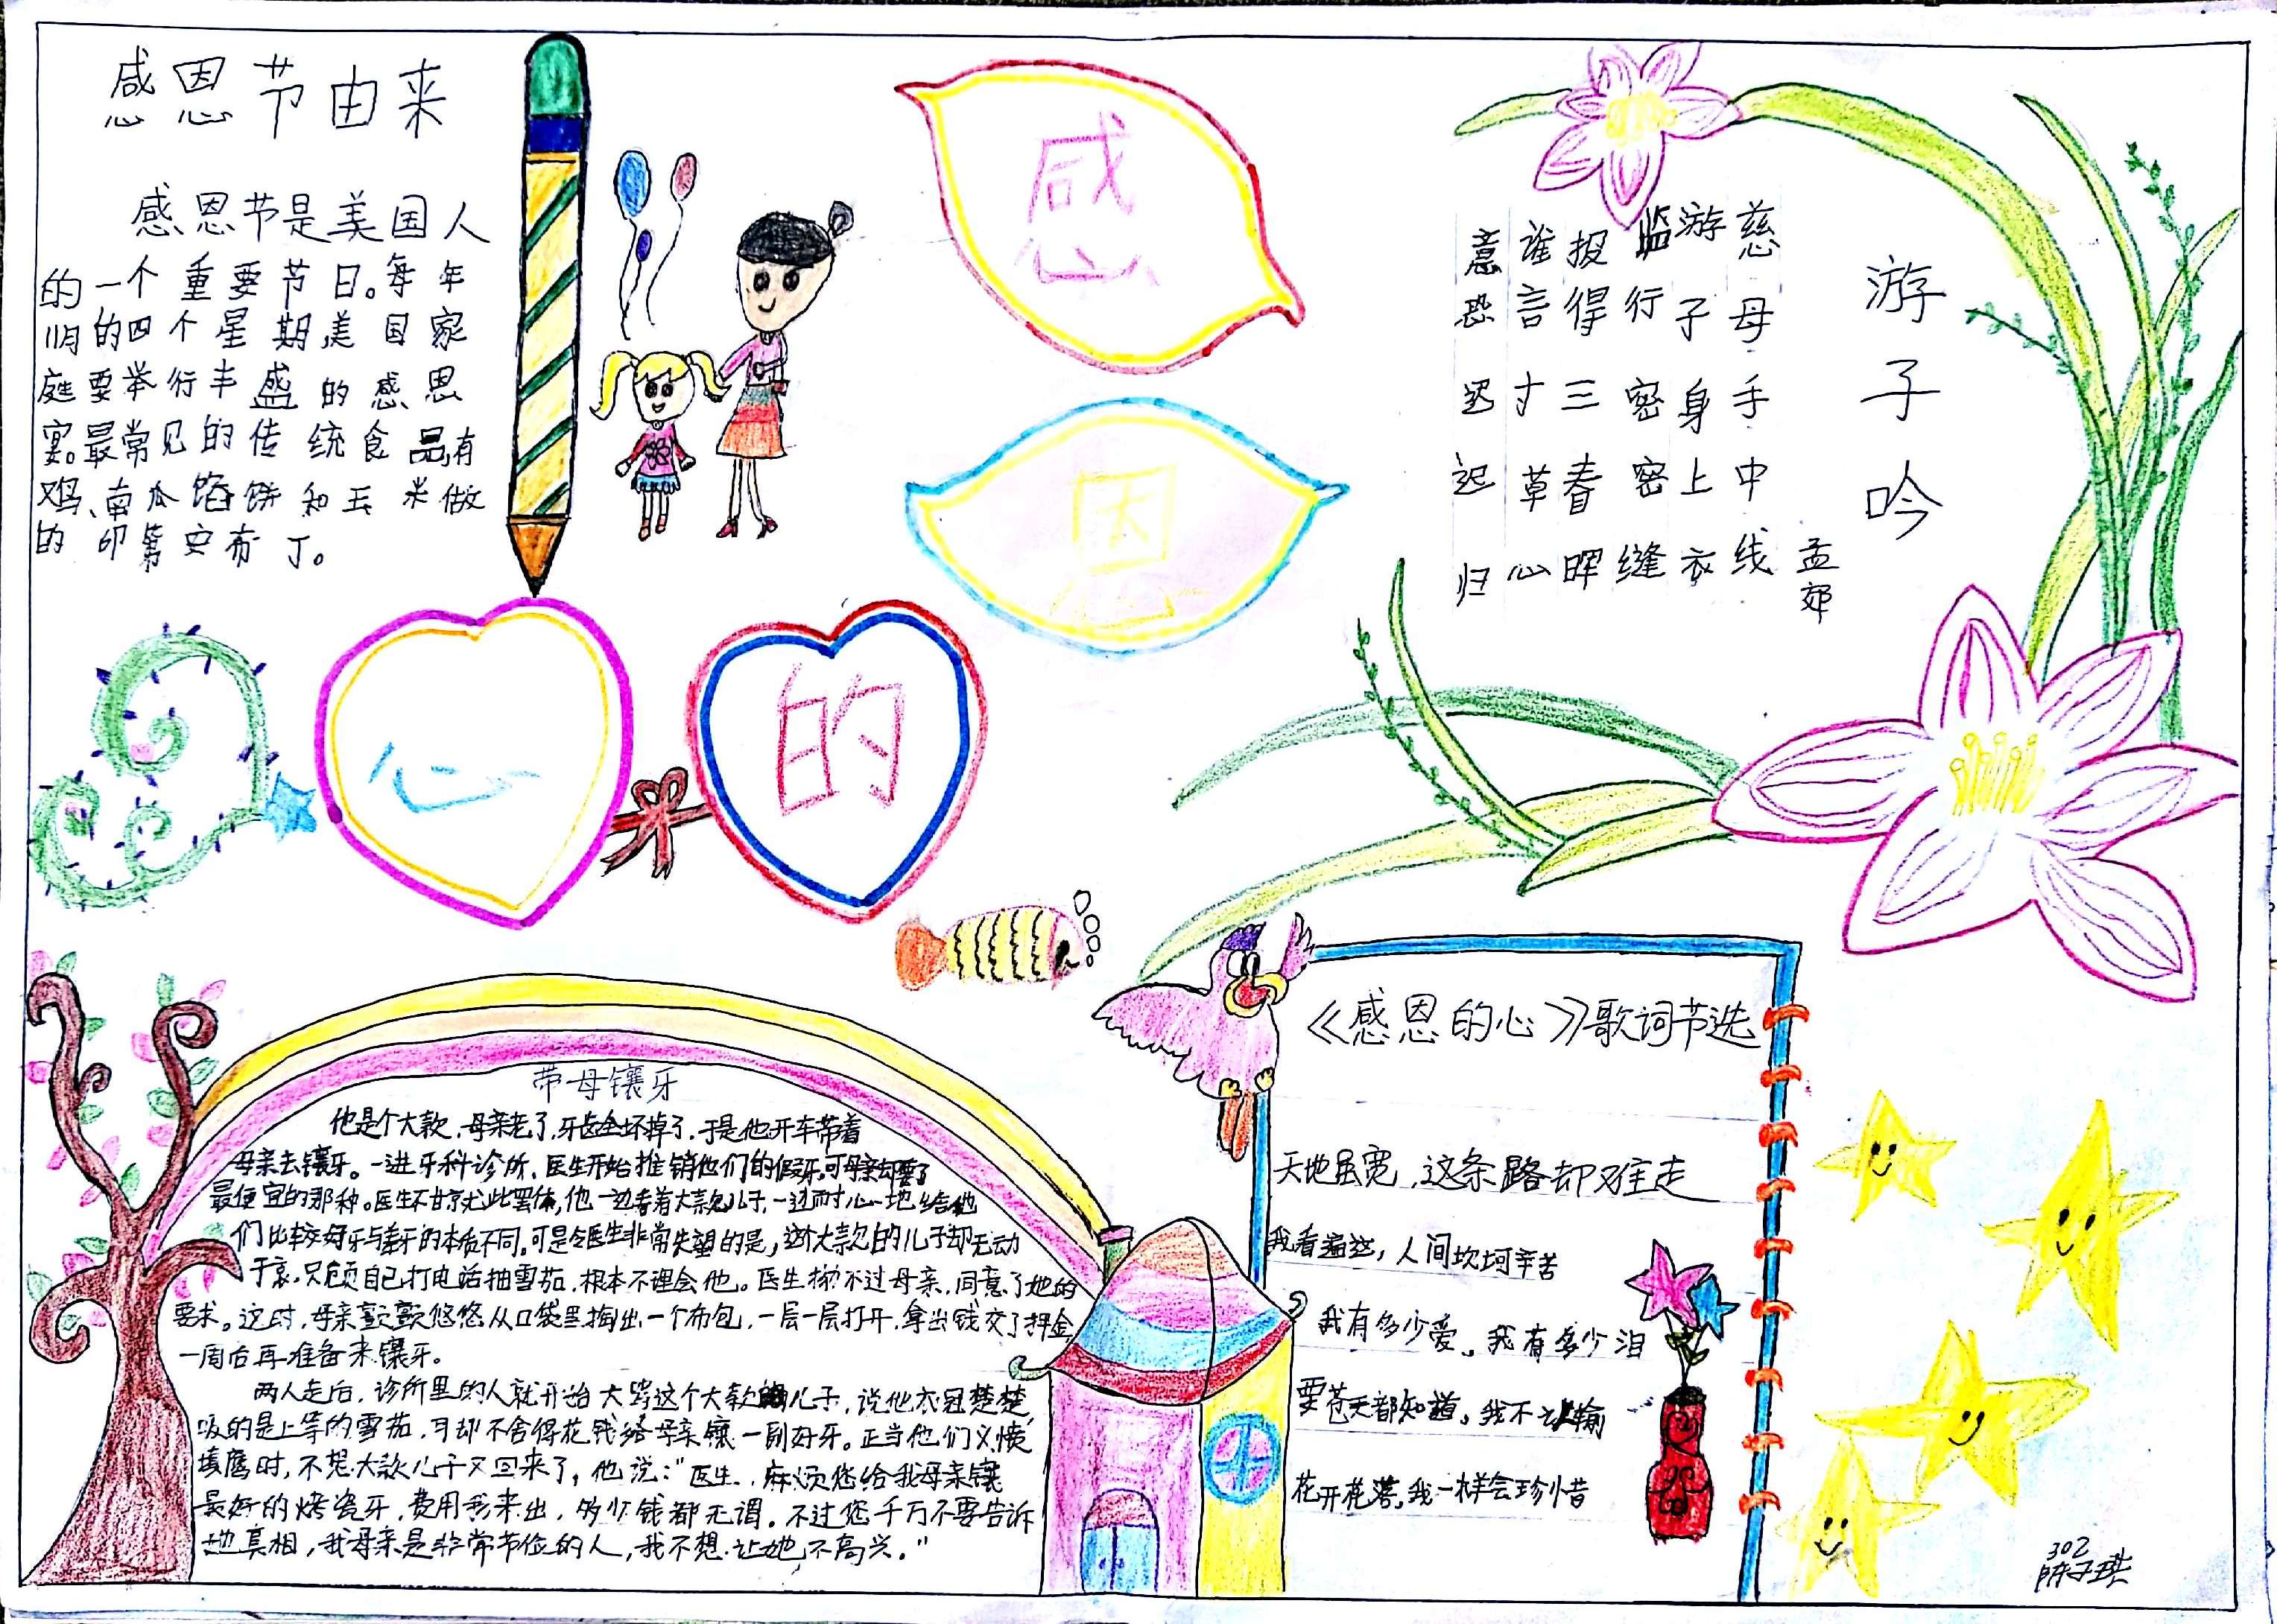 感恩节由来
感恩节是美国人
的一个重要节日。每年
11月的四个星期,美国家
庭要举行丰盛的感恩
宴。最常见的传统食品有
鸡、南瓜馅饼和玉米做
的印第安布丁。
感
恩
的
心
游子吟
孟郊
慈母手中线
游子身上衣
监行密密缝
意恐迟迟归
谁言寸草心
报得三春晖
带母镶牙
他是个大款,母亲老了,牙齿全坏掉了,于是他开车带着
母亲去镶牙。一进牙科诊所,医生开始推销他们的假牙,可母亲却要了
最便宜的那种。医生不甘就此罢休,他一边看着大款儿子,一边耐心地给他
们比较好牙与差牙的本质不同。可是令医生非常失望的是,这个大款的儿子却无动
于衷,只顾自己打电话抽雪茄,根本不理会他。医生拗不过母亲,同意了她的
要求。这时,母亲颤颤悠悠从口袋里掏出一个布包,一层一层打开,拿出钱交了押金,
一周后再准备来镶牙。
两人走后,诊所里的人就开始大骂这个大款儿子,说他衣冠楚楚,
吸的是上等的雪茄,可却不舍得花钱给母亲镶一副好牙。正当他们义愤
填膺时,不想大款儿子又回来了,他说:“医生,麻烦您给我母亲镶
最好的烤瓷牙,费用我来出,多少钱都无谓。不过您千万不要告诉
她真相,我母亲是非常节俭的人,我不想让她不高兴。”
《感恩的心》歌词节选
天地虽宽,这条路却难走
我看遍这,人间坎坷辛苦
我有多少爱,我有多少泪
要苍天都知道,我不认输
花开花落,我一样会珍惜
302
陈子琪